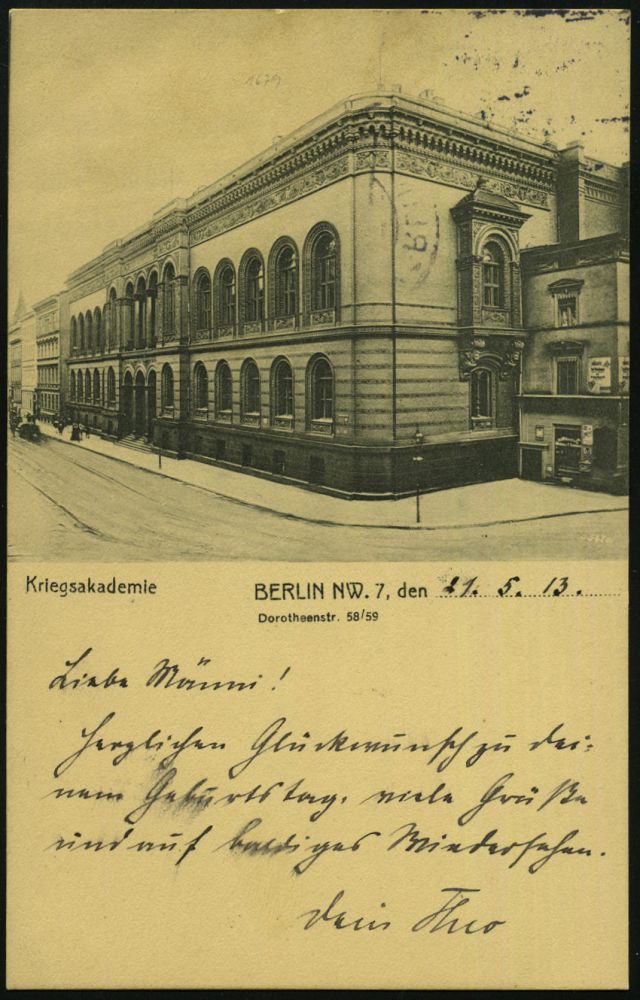 1679
Kriegsakademie
BERLIN NW. 7, den 21. 5. 13.
Dorotheenstr. 58/59
Liebe Männi!
Herzlichen Glückwunsch zu dei-
nem Geburtstag, viele Grüße
und auf baldiges Wiedersehen.
Dein Theo